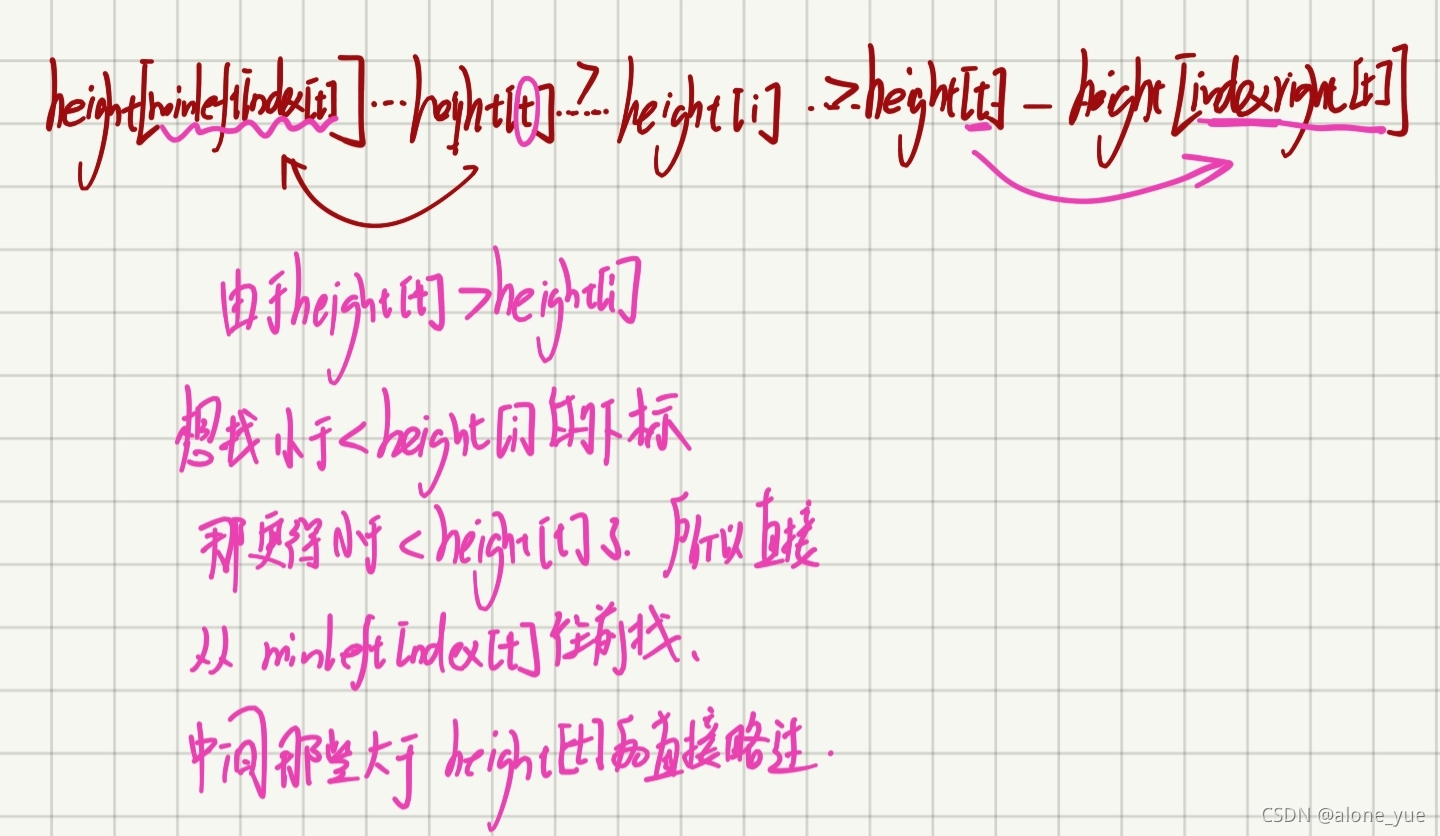 height[minleftIndex[t]] ... height[t] ...>... height[i] ..> height[t] — height[indexright[t]]
由于height[t] > height[i]
想找小于<height[i]的下标
那更得小于<height[t]了. 所以直接
从 minLeftIndex[t]往前找.
中间那些大于 height[t]的直接略过.
CSDN @alone_yue